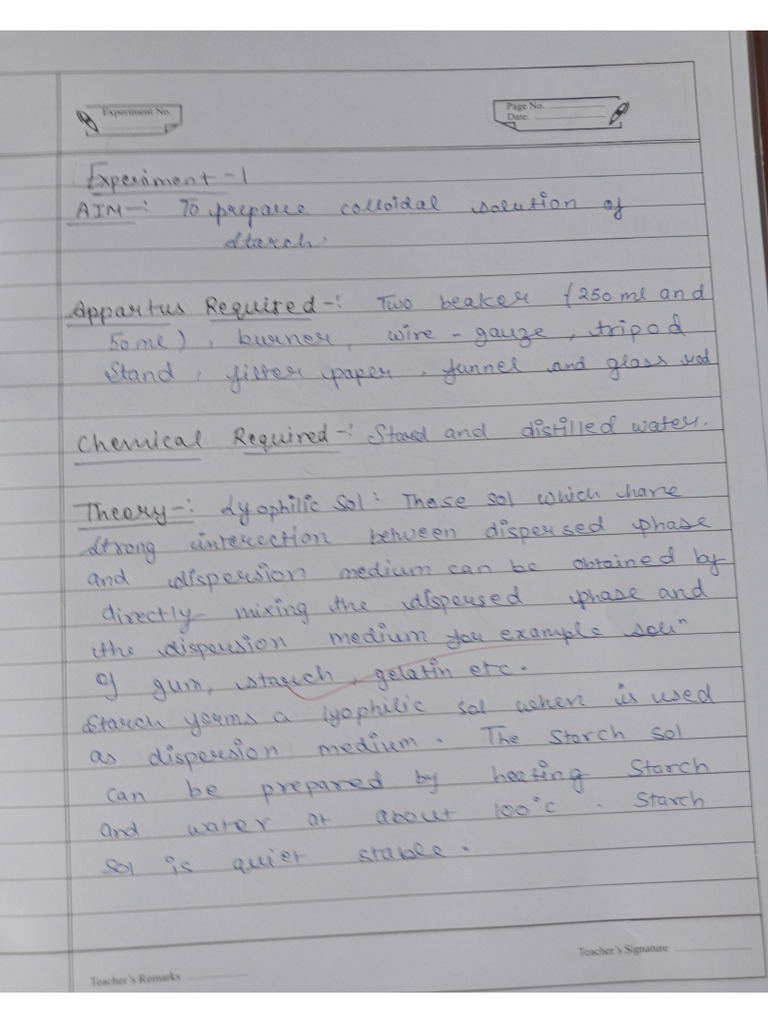 Experiment No.
Page No.
Date.
Experiment-1
AIM-: To prepare colloidal solution of
starch.
Appartus Required-: Two beaker (250 ml and
50 ml), burner, wire-gauze, tripod
Stand, filter paper, funnel and glass rod
Chemical Required-: and distilled water.
Theory-: Lyophilic sol: These sol which have
strong interection between dispersed phase
and dispersion medium can be obtained by
directly mixing the dispersed phase and
the dispersion medium for example solⁿ
of gum, starch, gelatin etc.
Starch forms a lyophilic sol when is used
as dispersion medium. The Starch sol
can be prepared by heating Starch
and water at about 100°c. Starch
sol is quiet stable.
Teacher's Signature
Teacher's Remarks